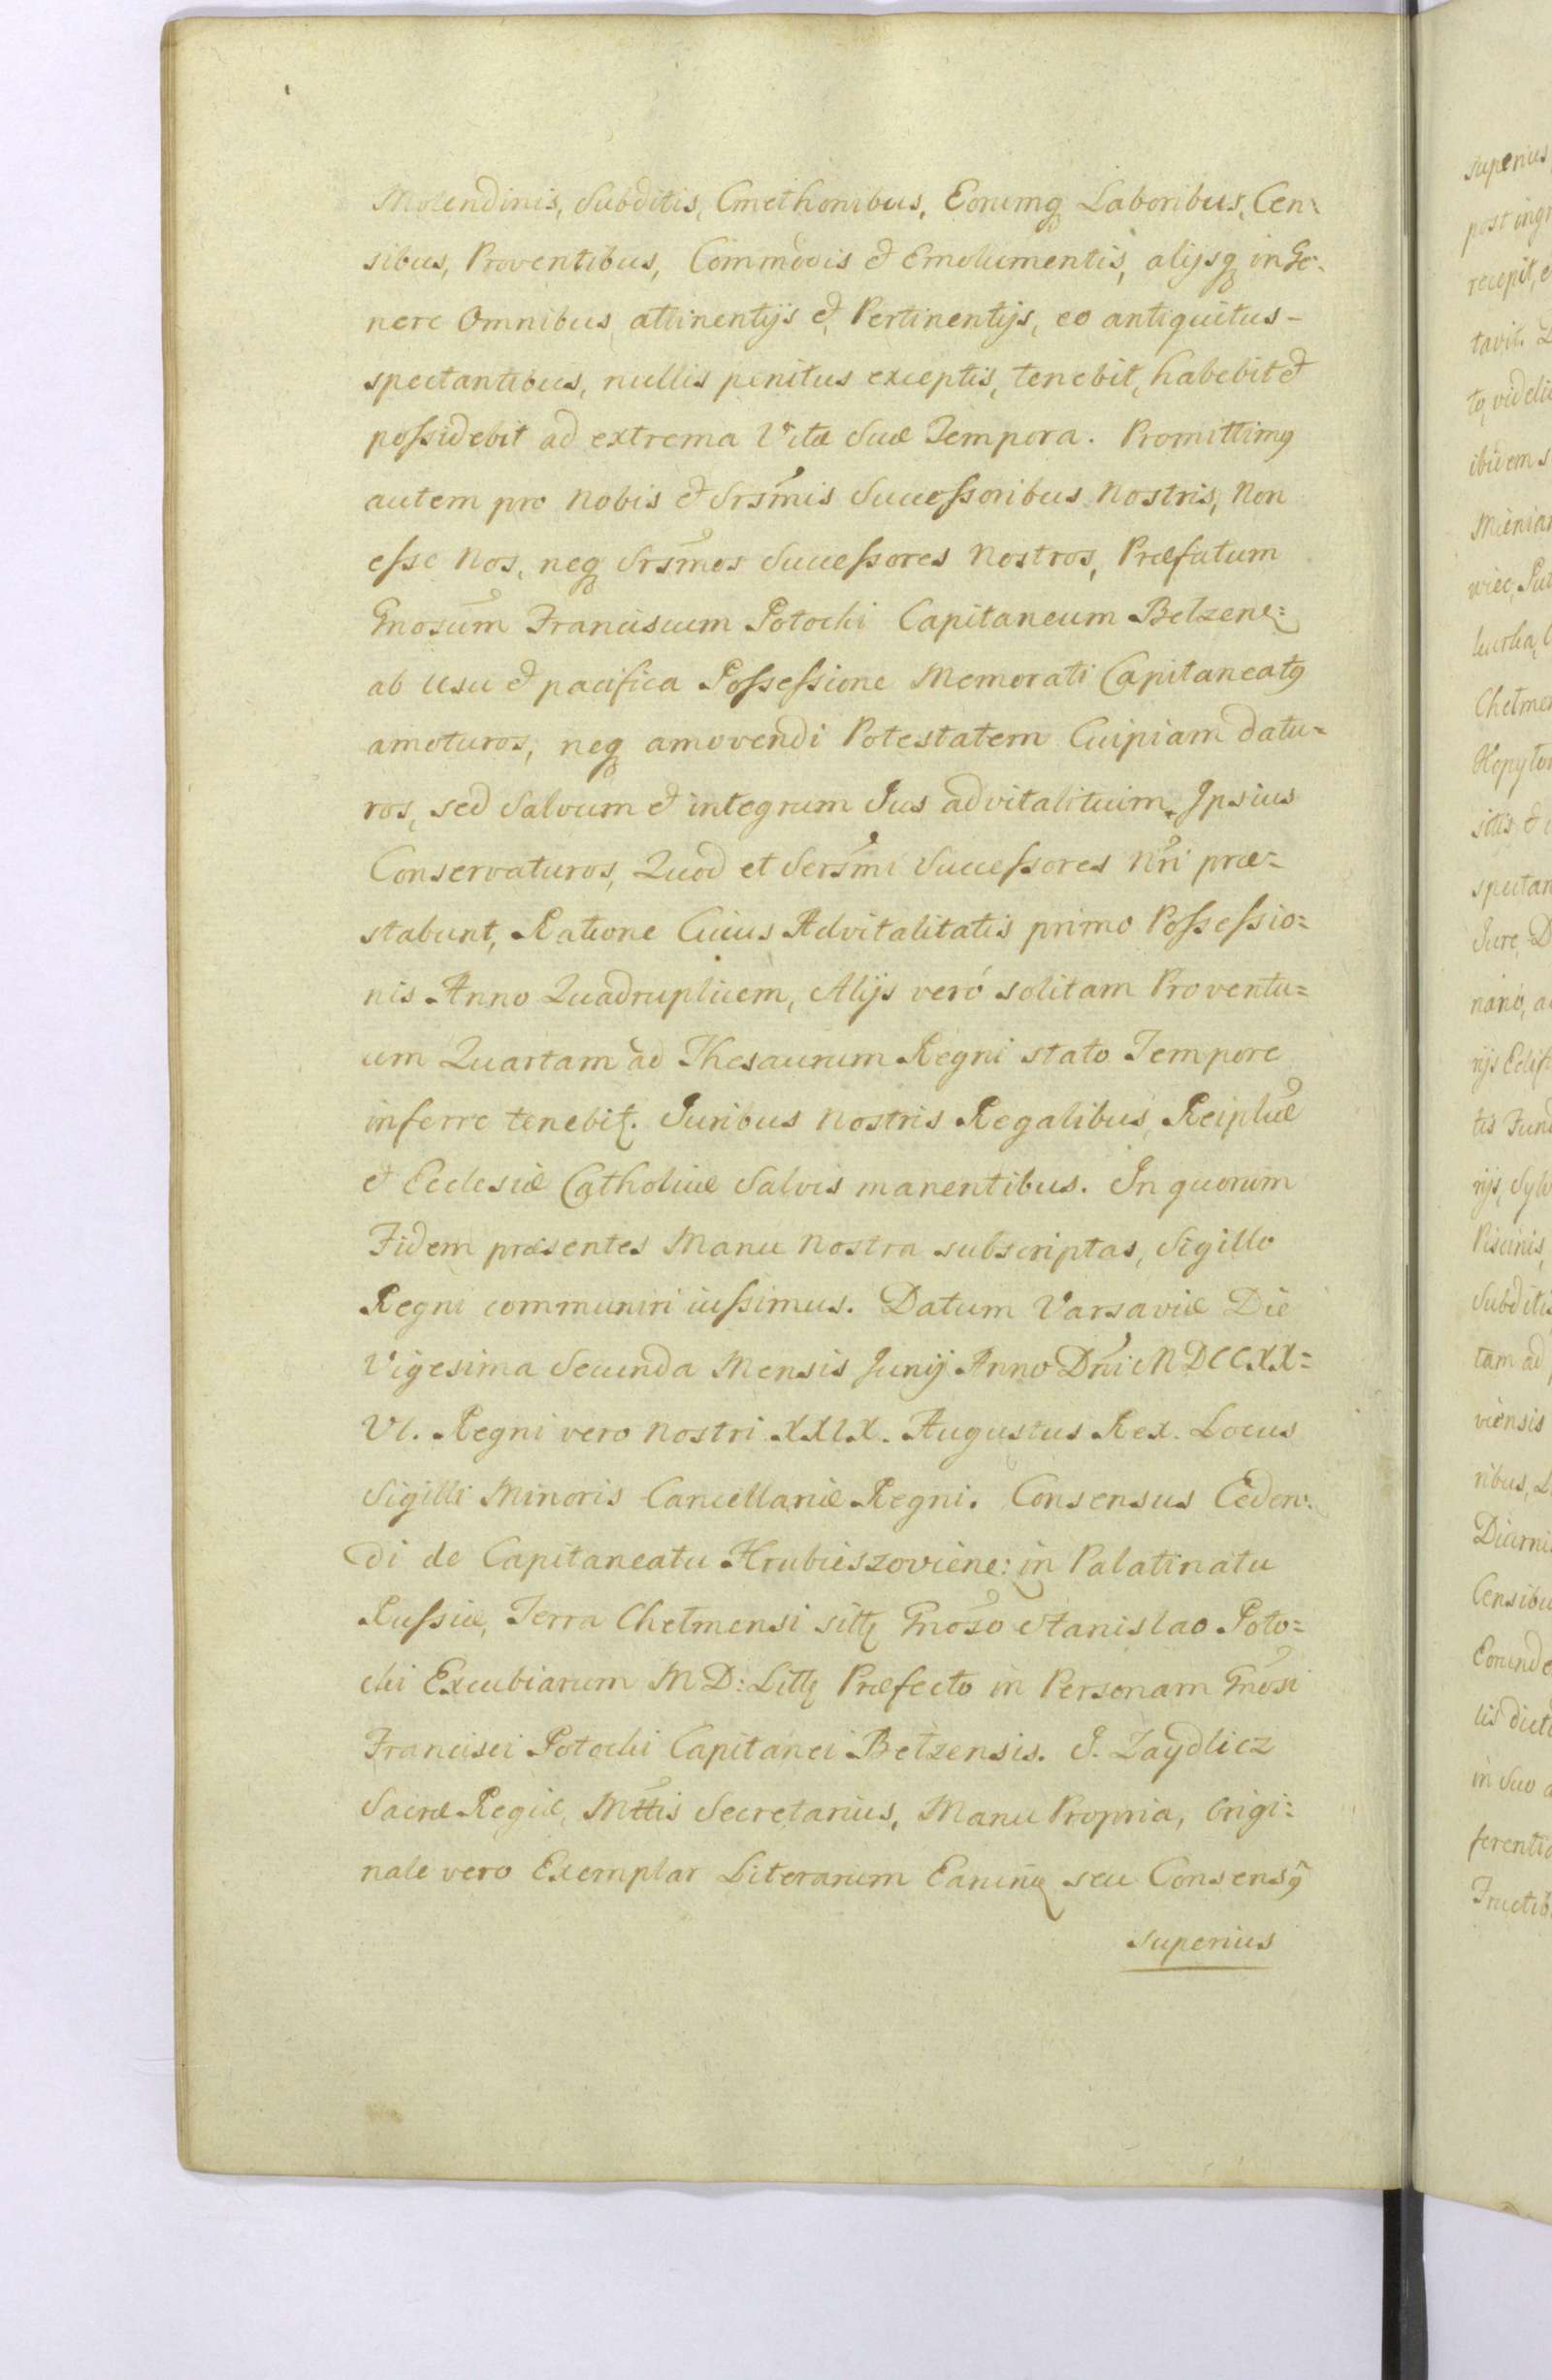 Molendinis, Subditis, Cmethonibus, Eorumq Laboribus, Cen=
sibus, Proventibus, Commodis et Emolumentis, alijsq in Ge=
nere Omnibus attinentijs et Pertinentijs, eo antiquitus -
spectantibus, nullis penitus exceptis, tenebit, habebit et
possidebit ad extrema Vitæ Suæ Tempora. Promittimq
autem pro Nobis et Srsmis Successoribus Nostris, Non
esse Nos, neq Srsmos Successores Nostros, Præfatum
Gnosum Franciscum Potocki Capitaneum Belzene:
ab usu et pacifica Possessione Memorati Capitaneatq
amoturos, neq amovendi Potestatem Cuipiam datu=
ros, sed Salvum et integrum Jus advitalituim Ipsius
Conservaturos, Quod et Sersmi Successores Nri præ=
stabunt, Ratione Cuius Advitalitatis primo Possessio=
nis Anno Quadruplicem, Alijs veró solitam Proventu=
um Quartam ad Thesaurum Regni stato Tempore
inferre tenebit. Juribus Nostris Regalibus, Reiplæ
et Ecclesiæ Catholicæ Salvis manentibus. In quorum
Fidem præsentes Manu Nostra subscriptas, Sigillo
Regni communiri iussimus. Datum Varsaviæ Die
Vigesima Secunda Mensis Junij Anno Dni MDCCXX=
VI. Regni vero Nostri XXIX. Augustus Rex. Locus
Sigilli Minoris Cancellariæ Regni. Consensus Ceden=
di de Capitaneatu Hrubieszoviene: in Palatinatu
Russiæ, Terra Chelmensi sitt Gnoso Stanislao Poto=
cki Excubiarum M D: Litt Præfecto in Personam Gnosi
Francisci Potocki Capitanei Belzensis. J. Zaydlicz
Sacræ Regiæ, Mttis Secretarius, Manu Propria, Origi=
nale vero Exemplar Literarum Earunq seu Consensq
superius